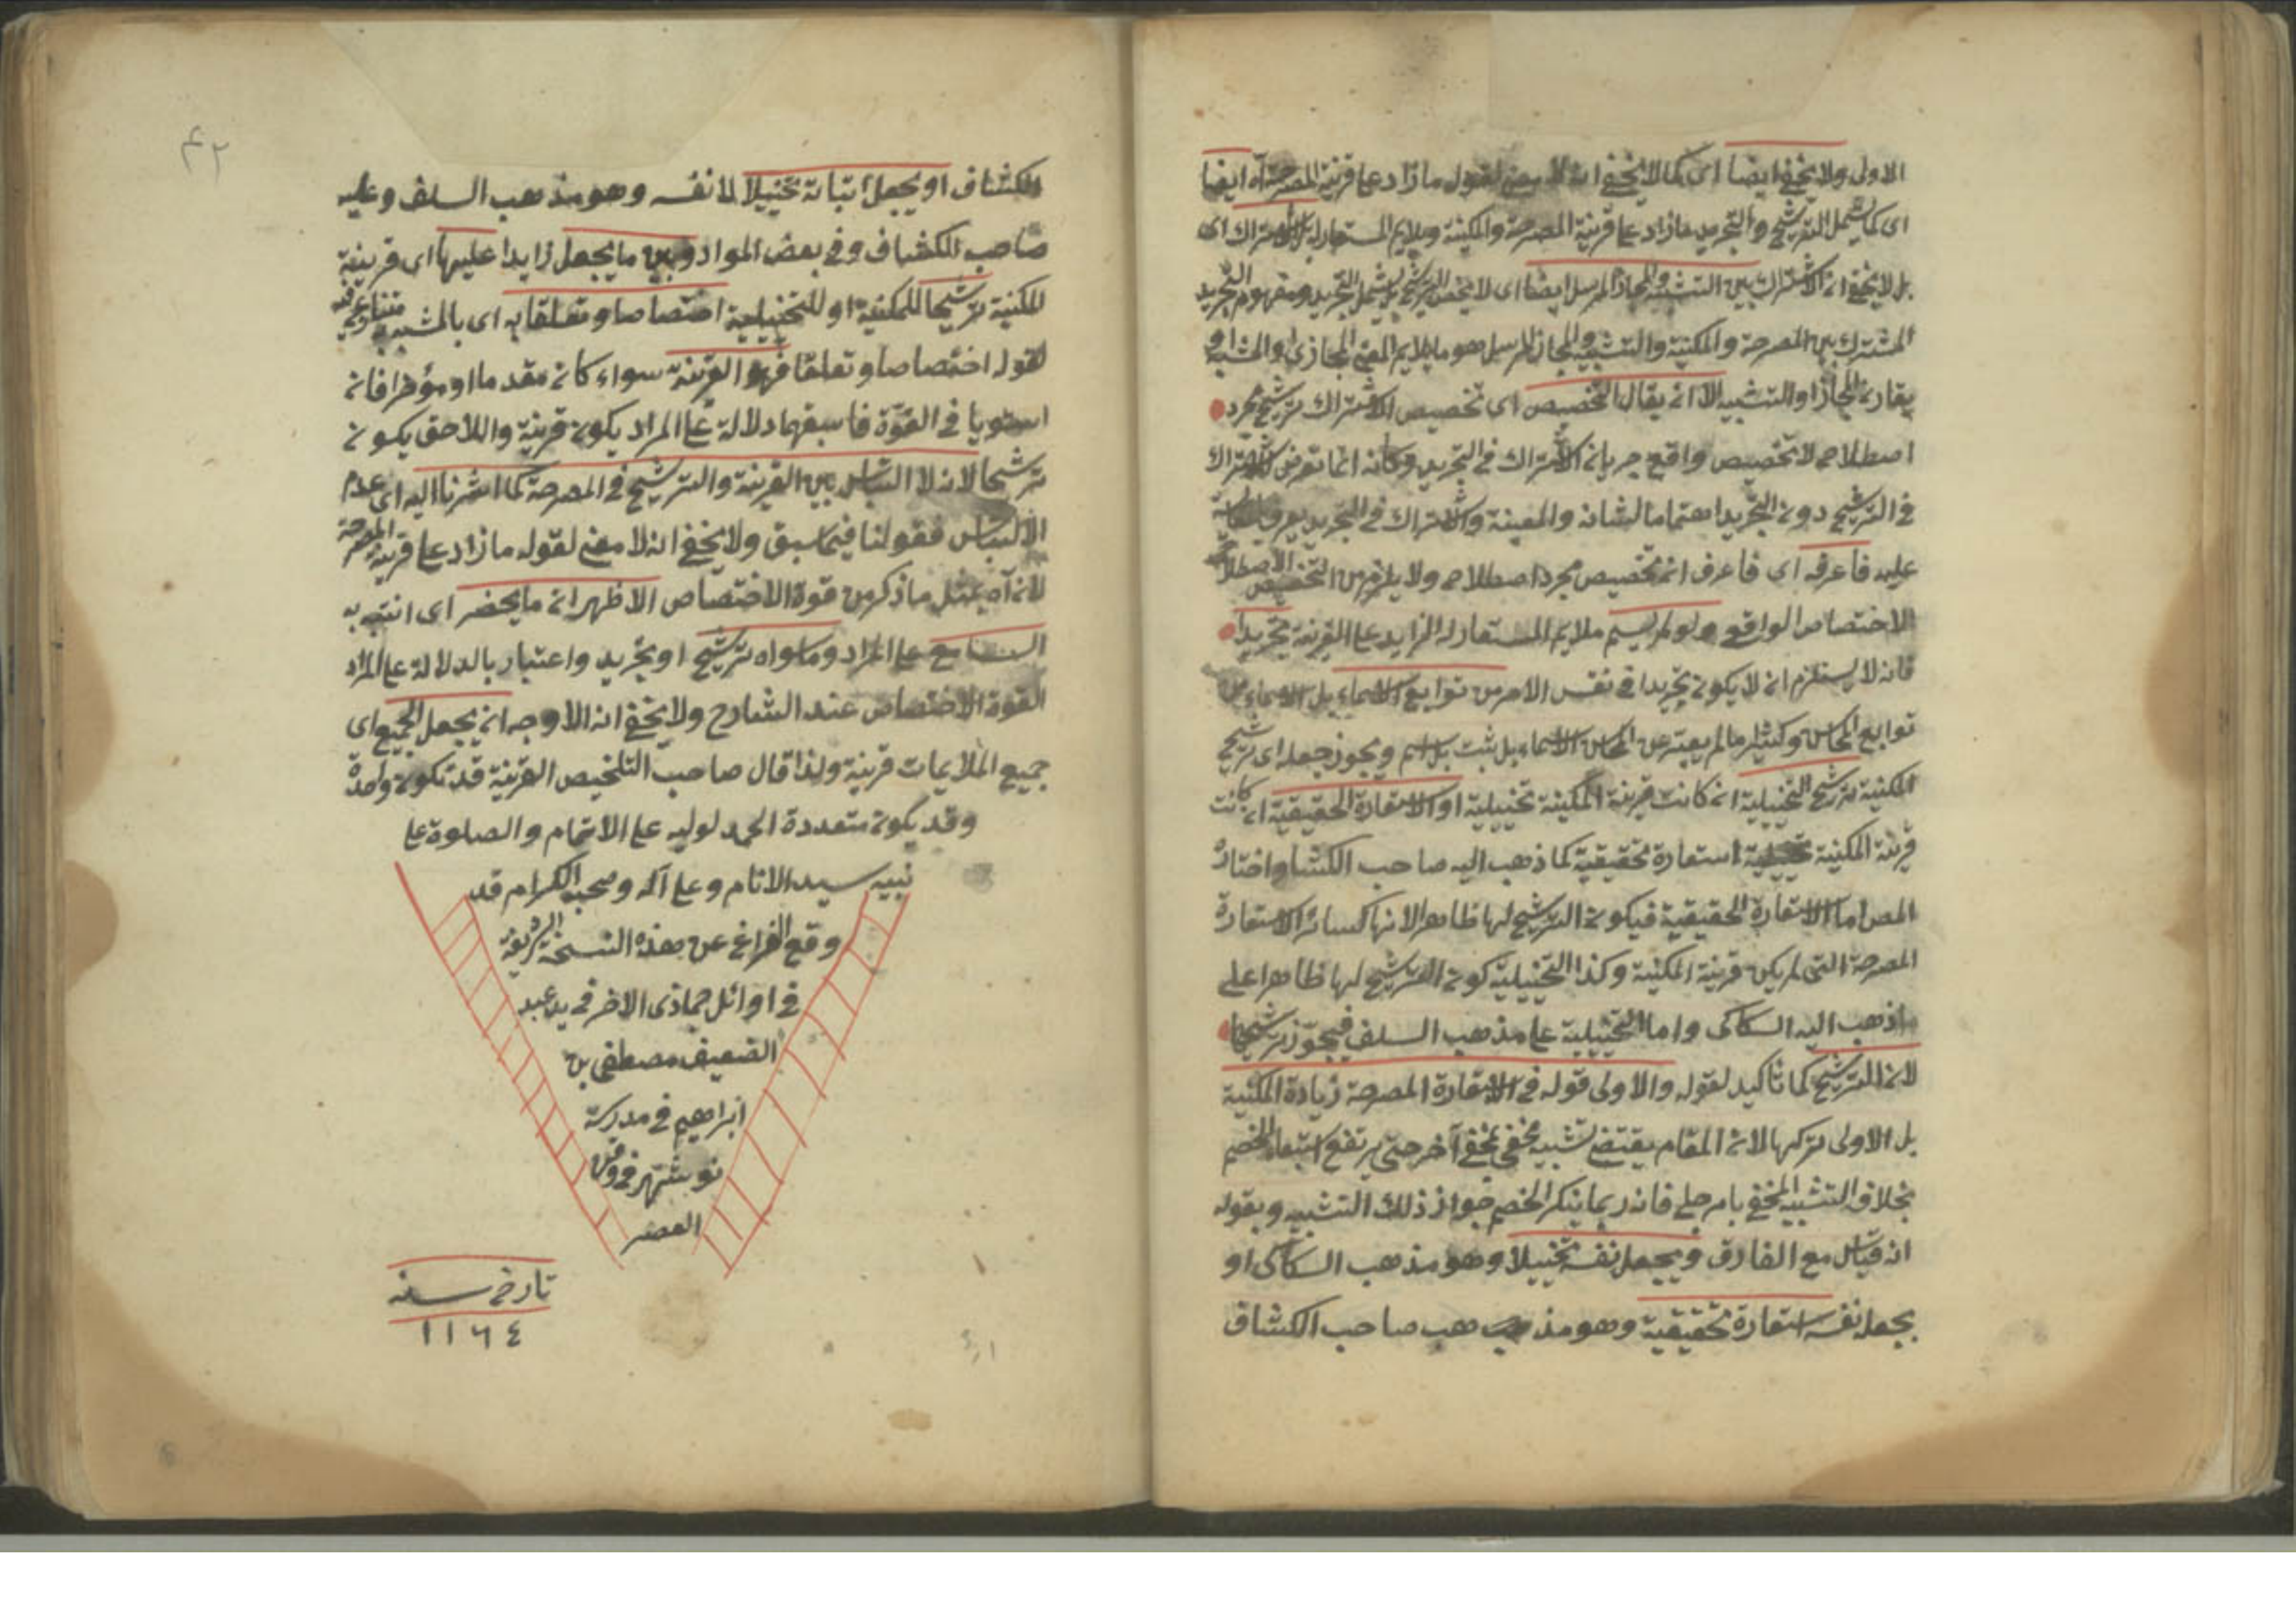 الاولى ولا يخفى ايضا اى كما لا يخفى انه لا معنى لقوله ما زاد على قرينة المصرحة آه ايضا
اى كما يشمل الترشيح والتجريد ما زاد على قرينة المصرحة والمكنية وملايم المستعار له الاشتراك اى
بل لا يخفى ان الاشتراك بين التشبيه والمجاز المرسل ايضا اى لا يخص الترشيح بل يشمل التجريد ومفهوم التجريد
المشترك بين المصرحة والمكنية والتشبيه والمجاز المرسل هو ما يلايم المعنى المجازى او المشبه و
يقارن المجاز او التشبيه الا ان يقال التخصيص اى تخصيص الاشتراك بترشيح مجرد
اصطلاح لا تخصيص واقع جريان الاشتراك فى التجريد وكانه انما تعرض الاشتراك
فى الترشيح دون التجريد اهتماما لشانه والمعينة والاشتراك فى التجريد يعرف
عليه فاعرفه اى فاعرف ان تخصيص مجرد اصطلاح ولا يلزم من التخصيص الاصطلاحى
الاختصاص الواقع ولو لم يسم ملايم المستعار له الزايد على القرينة تجريدا
فانه لا يستلزم ان لا يكون تجريدا فى نفس الامر من توابع الاسماء بل الاسماء من
توابع وكثير ما لم يعبر عن الاسماء بل ثبت بلا اسم ويجوز جعله اى ترشيح
المكنية ترشيح التخييلية ان كانت قرينة المكنية تخييلية او الاستعارة الحقيقية ان كانت
قرينة المكنية استعارة تحقيقية كما ذهب اليه صاحب الكشاف واختاره
المص اما الاستعارة الحقيقية فيكون الترشيح لها ظاهر لانها كسائر الاستعارة
المصرحة التى لم يكن قرينة المكنية وكذا التخييلية كون الترشيح لها ظاهرا على
ما ذهب اليه السكاكى واما التخييلية على مذهب السلف فيجوز ترشيحها
لان الترشيح كما تأكيد لقوله والاولى قوله فى الاستعارة المصرحة زيادة المكنية
بل الاولى تركها لان المقام يقتضى تشبيه مخفى بمخفى آخر حتى يرتفع استبعاد الخصم
بخلاف التشبيه المخفى بامر جلى فانه ربما ينكر الخصم جواز ذلك التشبيه وبقوله
انه قياس مع الفارق ويجعل نفسه تخييلا وهو مذهب السكاكى او
يجعل نفسه استعارة تحقيقية وهو مذهب صاحب الكشاف
٤٢
الكشاف او يجعل اثباته تخييلا لا نفسه وهو مذهب السلف وعليه
صاحب الكشاف وفى بعض المواد وبين ما يجعل زايدا عليها اى قرينة
المكنية ترشيحا للمكنية او للتخييلية اختصاصا وتعلقا به اى بالمشبه به
لقوله اختصاصا وتعلقا فهو القرينة سواء كان مقدما او مؤخرا فان
استويا فى القوة فاسبقهما دلالة على المراد يكون قرينة واللاحق يكون
ترشيحا لانه لا التباس بين القرينة والترشيح فى المصرحة كما اشرنا اليه اى عدم
الالتباس فقولنا فيما سبق ولا يخفى انه لا معنى لقوله ما زاد على قرينة المصرحة
لانه آه بمثل ما ذكر من قوة الاختصاص الاظهر ان ما يحضر اى انتبه به
السامع على المراد وما سواه ترشيح او تجريد واعتبار بالدلالة على المراد
القوة الاختصاص عند الشارح ولا يخفى ان الاوجه ان يجعل الجميع اى
جميع الملايمات قرينة ولذا قال صاحب التلخيص القرينة قد تكون واحدة
وقد يكون متعددة الحمد لوليه على الاتمام والصلوة على
نبيه سيد الانام وعلى آله وصحبه الكرام قد
وقع الفراغ عن هذه النسخة الشريفة
فى اوائل جماذى الاخر فى يد عبد
الضعيف مصطفى بن
ابراهيم فى مدرسة
نوشهر فى وقت
العصر
تارخ سنه
١١٦٤